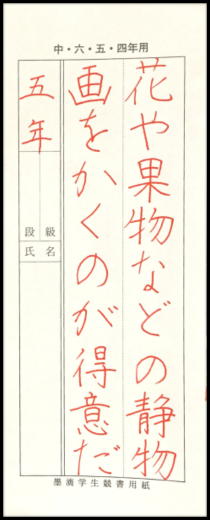 中・六・五・四年用
花や果物などの静物
画をかくのが得意だ
五年
段級
氏名
墨滴学生競書用紙